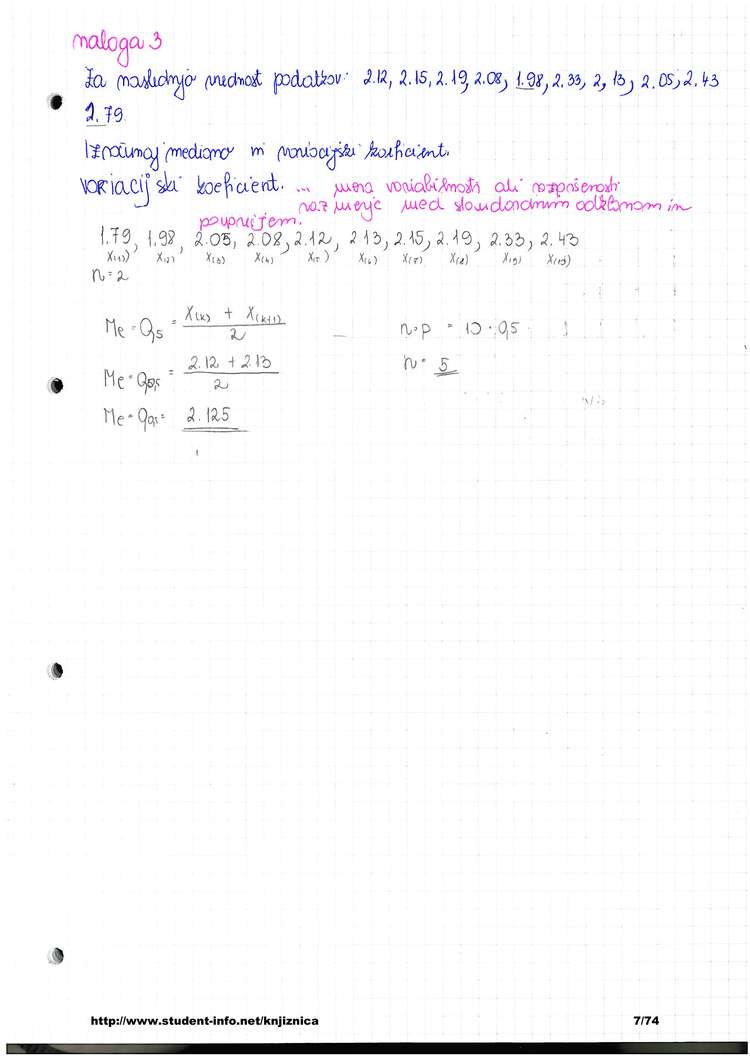 naloga 3
Za naslednjo vrednost podatkov: 2.12, 2.15, 2.19, 2.08, 1.98, 2.33, 2,13, 2.05, 2.43
1.79.
Izračunaj mediano in variacijski koeficient.
VARIACIJSKI koeficient. ... mera variabilnosti ali razpršenosti
razmerje med standardnim odklonom in
povprečjem.
1.79, 1.98, 2.05, 2.08, 2.12, 2.13, 2.15, 2.19, 2.33, 2.43
X(1) X(2) X(3) X(4) X(5) X(6) X(7) X(8) X(9) X(10)
n=2
Me = Q,5 = X(k) + X(k+1) / 2
n·p = 10 · 0,5
Me = Q0,5 = 2.12 + 2.13 / 2
n = 5
Me = Q0,5 = 2.125
http://www.student-info.net/knjiznica 7/74